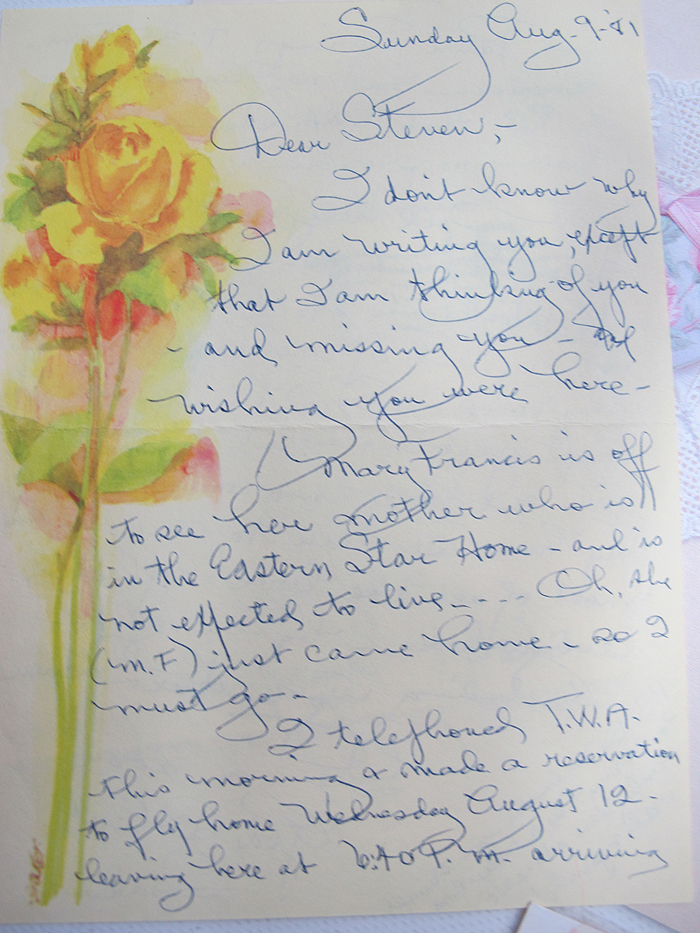 Sunday Aug-9-'81
Dear Steven,-
I don't know why
I am writing you, exept
that I am thinking of you
- and missing you - and
wishing you were here-
Mary Francis is off
to see her mother who is
in the Eastern Star Home - and is
not expected to live---- Oh, she
(M.F.) just came home - so I
must go-
I telephoned T.W.A.
this morning & made a reservation
to fly home Wednesday August 12-
leaving here at 6:40 P.M. arriving